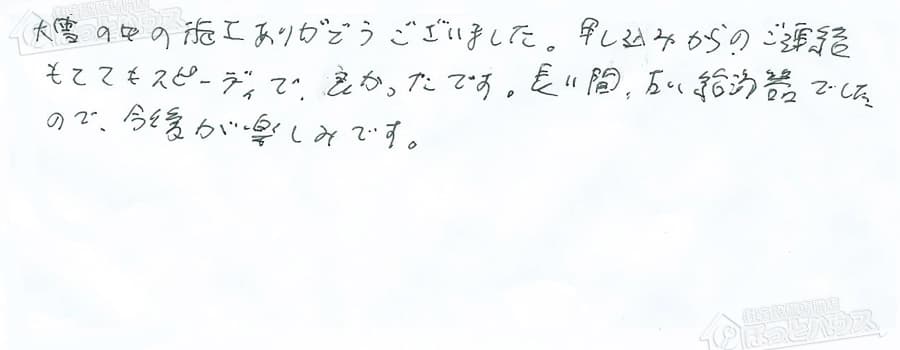 大雪の中の施工ありがとうございました。申し込みからのご連絡
もとてもスピーディで、良かったです。長い間、古い給湯器でした
ので、今後が楽しみです。
ほっとハウス